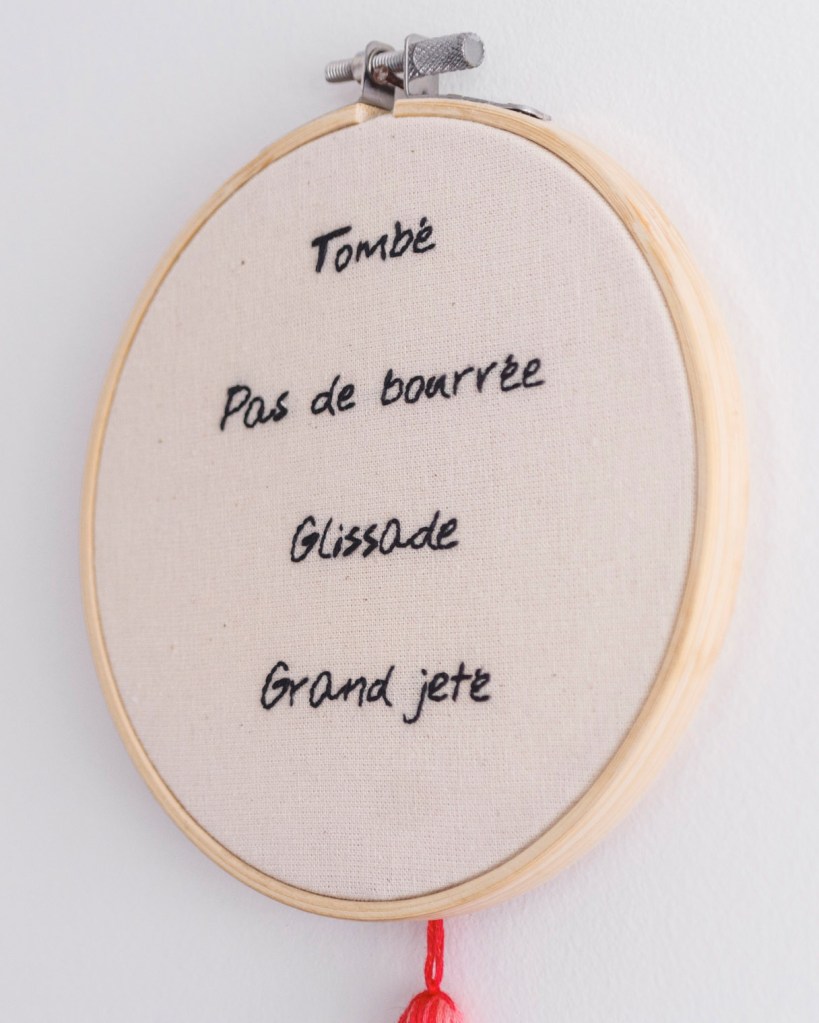 Tombé
Pas de bourrée
Glissade
Grand jeté